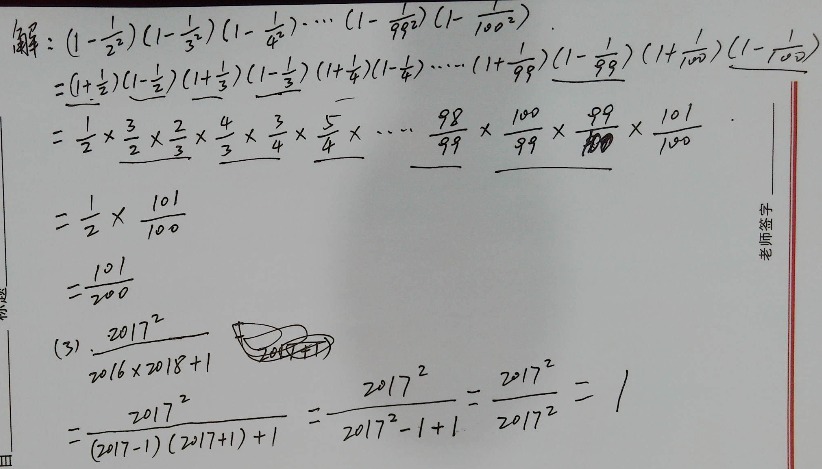 解：(1-1/2²)(1-1/3²)(1-1/4²)·····(1-1/99²)(1-1/100²)
=(1+1/2)(1-1/2)(1+1/3)(1-1/3)(1+1/4)(1-1/4)·····(1+1/99)(1-1/99)(1+1/100)(1-1/100)
=1/2×3/2×2/3×4/3×3/4×5/4×····98/99×100/99×99/100×101/100
=1/2×101/100
=101/200
(3).2017²/(2016×2018+1)
=2017²/((2017-1)(2017+1)+1)=2017²/(2017²-1+1)=2017²/2017²=1
老师签字